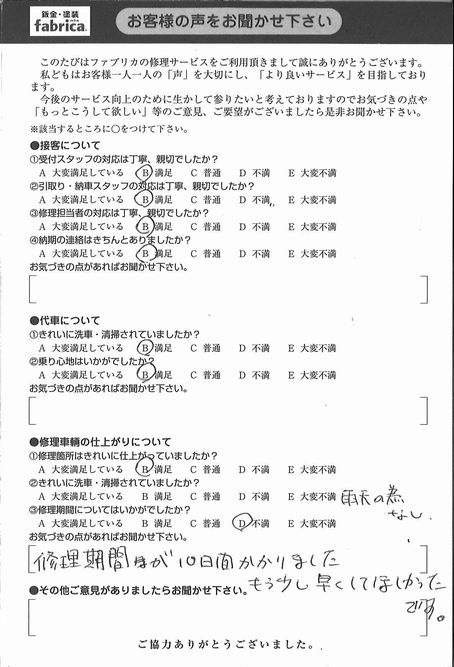 鈑金・塗装
fabrica.
お客様の声をお聞かせ下さい
このたびはファブリカの修理サービスをご利用頂きまして誠にありがとうございます。
私どもはお客様一人一人の「声」を大切にし、「より良いサービス」を目指しており
ます。
今後のサービス向上のために生かして参りたいと考えておりますのでお気づきの点や
「もっとこうして欲しい」等のご意見、ご要望がございましたら是非お聞かせ下さい。
※該当するところに〇をつけて下さい。
●接客について
①受付スタッフの対応は丁寧、親切でしたか？
A 大変満足している B 満足 C 普通 D 不満 E 大変不満
②引取り・納車スタッフの対応は丁寧、親切でしたか？
A 大変満足している B 満足 C 普通 D 不満 E 大変不満
③修理担当者の対応は丁寧、親切でしたか？
A 大変満足している B 満足 C 普通 D 不満 E 大変不満
④納期の連絡はきちんとありましたか？
A 大変満足している B 満足 C 普通 D 不満 E 大変不満
お気づきの点があればお聞かせ下さい。
●代車について
①きれいに洗車・清掃されていましたか？
A 大変満足している B 満足 C 普通 D 不満 E 大変不満
②乗り心地はいかがでしたか？
A 大変満足している B 満足 C 普通 D 不満 E 大変不満
お気づきの点があればお聞かせ下さい。
●修理車輌の仕上がりについて
①修理箇所はきれいに仕上がっていましたか？
A 大変満足している B 満足 C 普通 D 不満 E 大変不満
②きれいに洗車・清掃されていましたか？
A 大変満足している B 満足 C 普通 D 不満 E 大変不満 雨天の為
なし.
③修理期間についてはいかがでしたか？
A 大変満足している B 満足 C 普通 D 不満 E 大変不満
お気づきの点があればお聞かせ下さい。
修理期間 が10日間かかりました
もう少し早くしてほしかった
です。
●その他ご意見がありましたらお聞かせ下さい。
ご協力ありがとうございました。